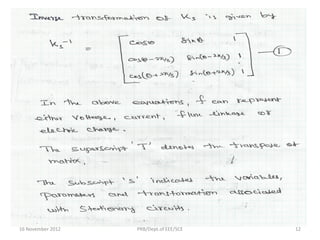 Inverse transformation of Ks is given by
Ks⁻¹ = [ cosθ sinθ 1
cos(θ-2π/3) sin(θ-2π/3) 1
cos(θ+2π/3) sin(θ+2π/3) 1 ] — 1
In the above equations, f can represent
either voltage, current, flux linkage or
electric charge.
The superscript 'T' denotes the transpose of
matrix.
The subscript 's' indicates the variables,
parameters and transformation associated
with stationary circuits.
10 November 2012 PRB/Dept.of EEE/SCE 12